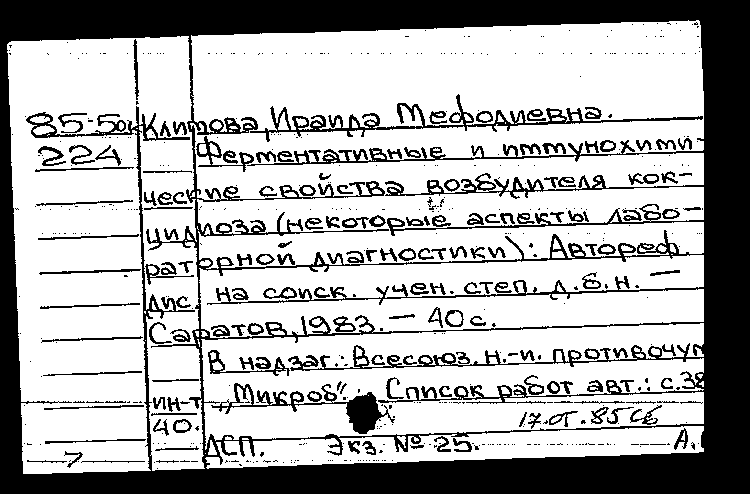 85-5ок Климова, Ираида Мефодиевна.
224 Ферментативные и иммунохими-
ческие свойства возбудителя кок-
цидиоза (некоторые аспекты лабо-
раторной диагностики): Автореф.
дис. на соиск. учен. степ. д.б.н. —
Саратов, 1983. — 40 с.
В надзаг.: Всесоюз. н.-и. противочум
ин-т „Микроб“. Список работ авт.: с.38
40.
17.01.85
ДСП. Экз. № 25.